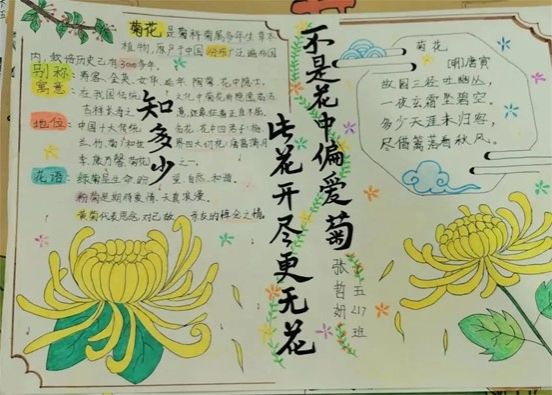 菊花 是菊科菊属多年生草本
植物,原产于中国 广泛遍布国
内,栽培历史已有3000多年。
别称:寿客、金英、女华、延年、陶菊、花中隐士。
寓意:在我国传统文化中菊花
吉祥长寿之
地位:中国十大传统名花,花中四君子(梅、
兰、竹、菊)
花语:绿菊:生命、 望、自然、和谐。
粉菊是期待爱情、天真浪漫。
黄菊代表思念,对已故 亲友的悼念之情。
知多少
不是花中偏爱菊
此花开尽更无花
张哲妍
五217班
菊花
[明]唐寅
故园三径吐幽丛,
一夜玄霜坠碧空。
多少天涯未归客,
尽借篱落看秋风。